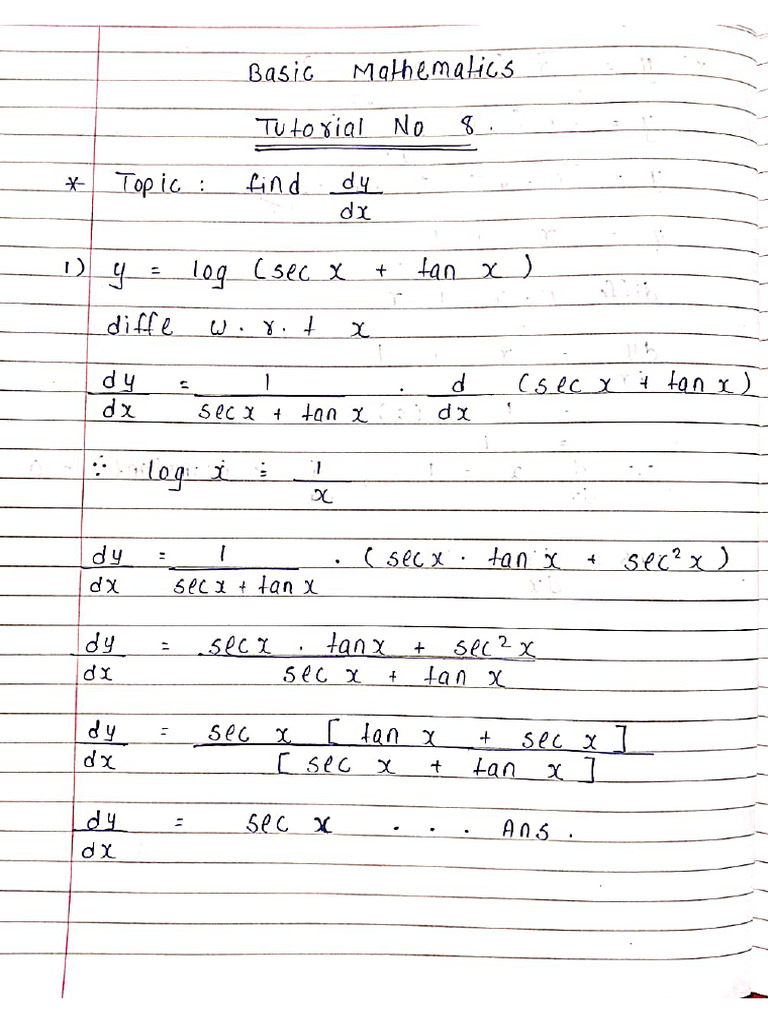 Basic Mathematics
Tutorial No 8.
* Topic : find dy/dx
1) y = log (sec x + tan x)
diffe w.r.t x
dy/dx = 1/(sec x + tan x) . d/dx (sec x + tan x)
∵ log x = 1/x
dy/dx = 1/(sec x + tan x) . (sec x . tan x + sec² x)
dy/dx = (sec x . tan x + sec² x)/(sec x + tan x)
dy/dx = sec x [tan x + sec x]/[sec x + tan x]
dy/dx = sec x . . . Ans.